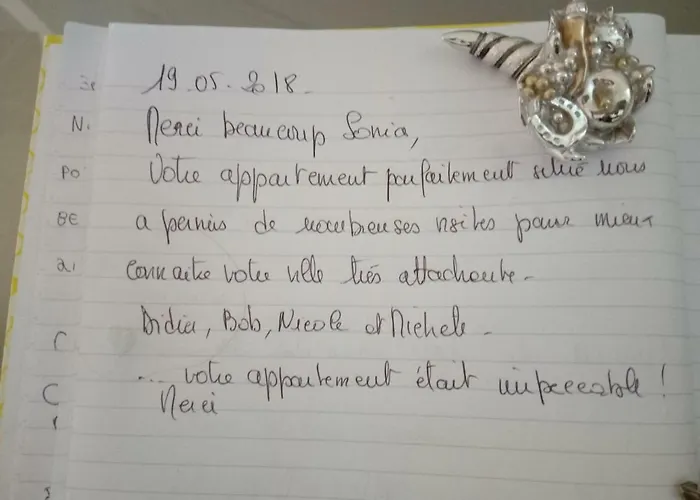 19.05.2018.
Merci beaucoup Sonia,
Votre appartement parfaitement situé nous
a permis de nombreuses visites pour mieux
connaitre votre ville très attachante.
Didier, Bob, Nicole et Michele.
... votre appartement était impeccable !
Merci